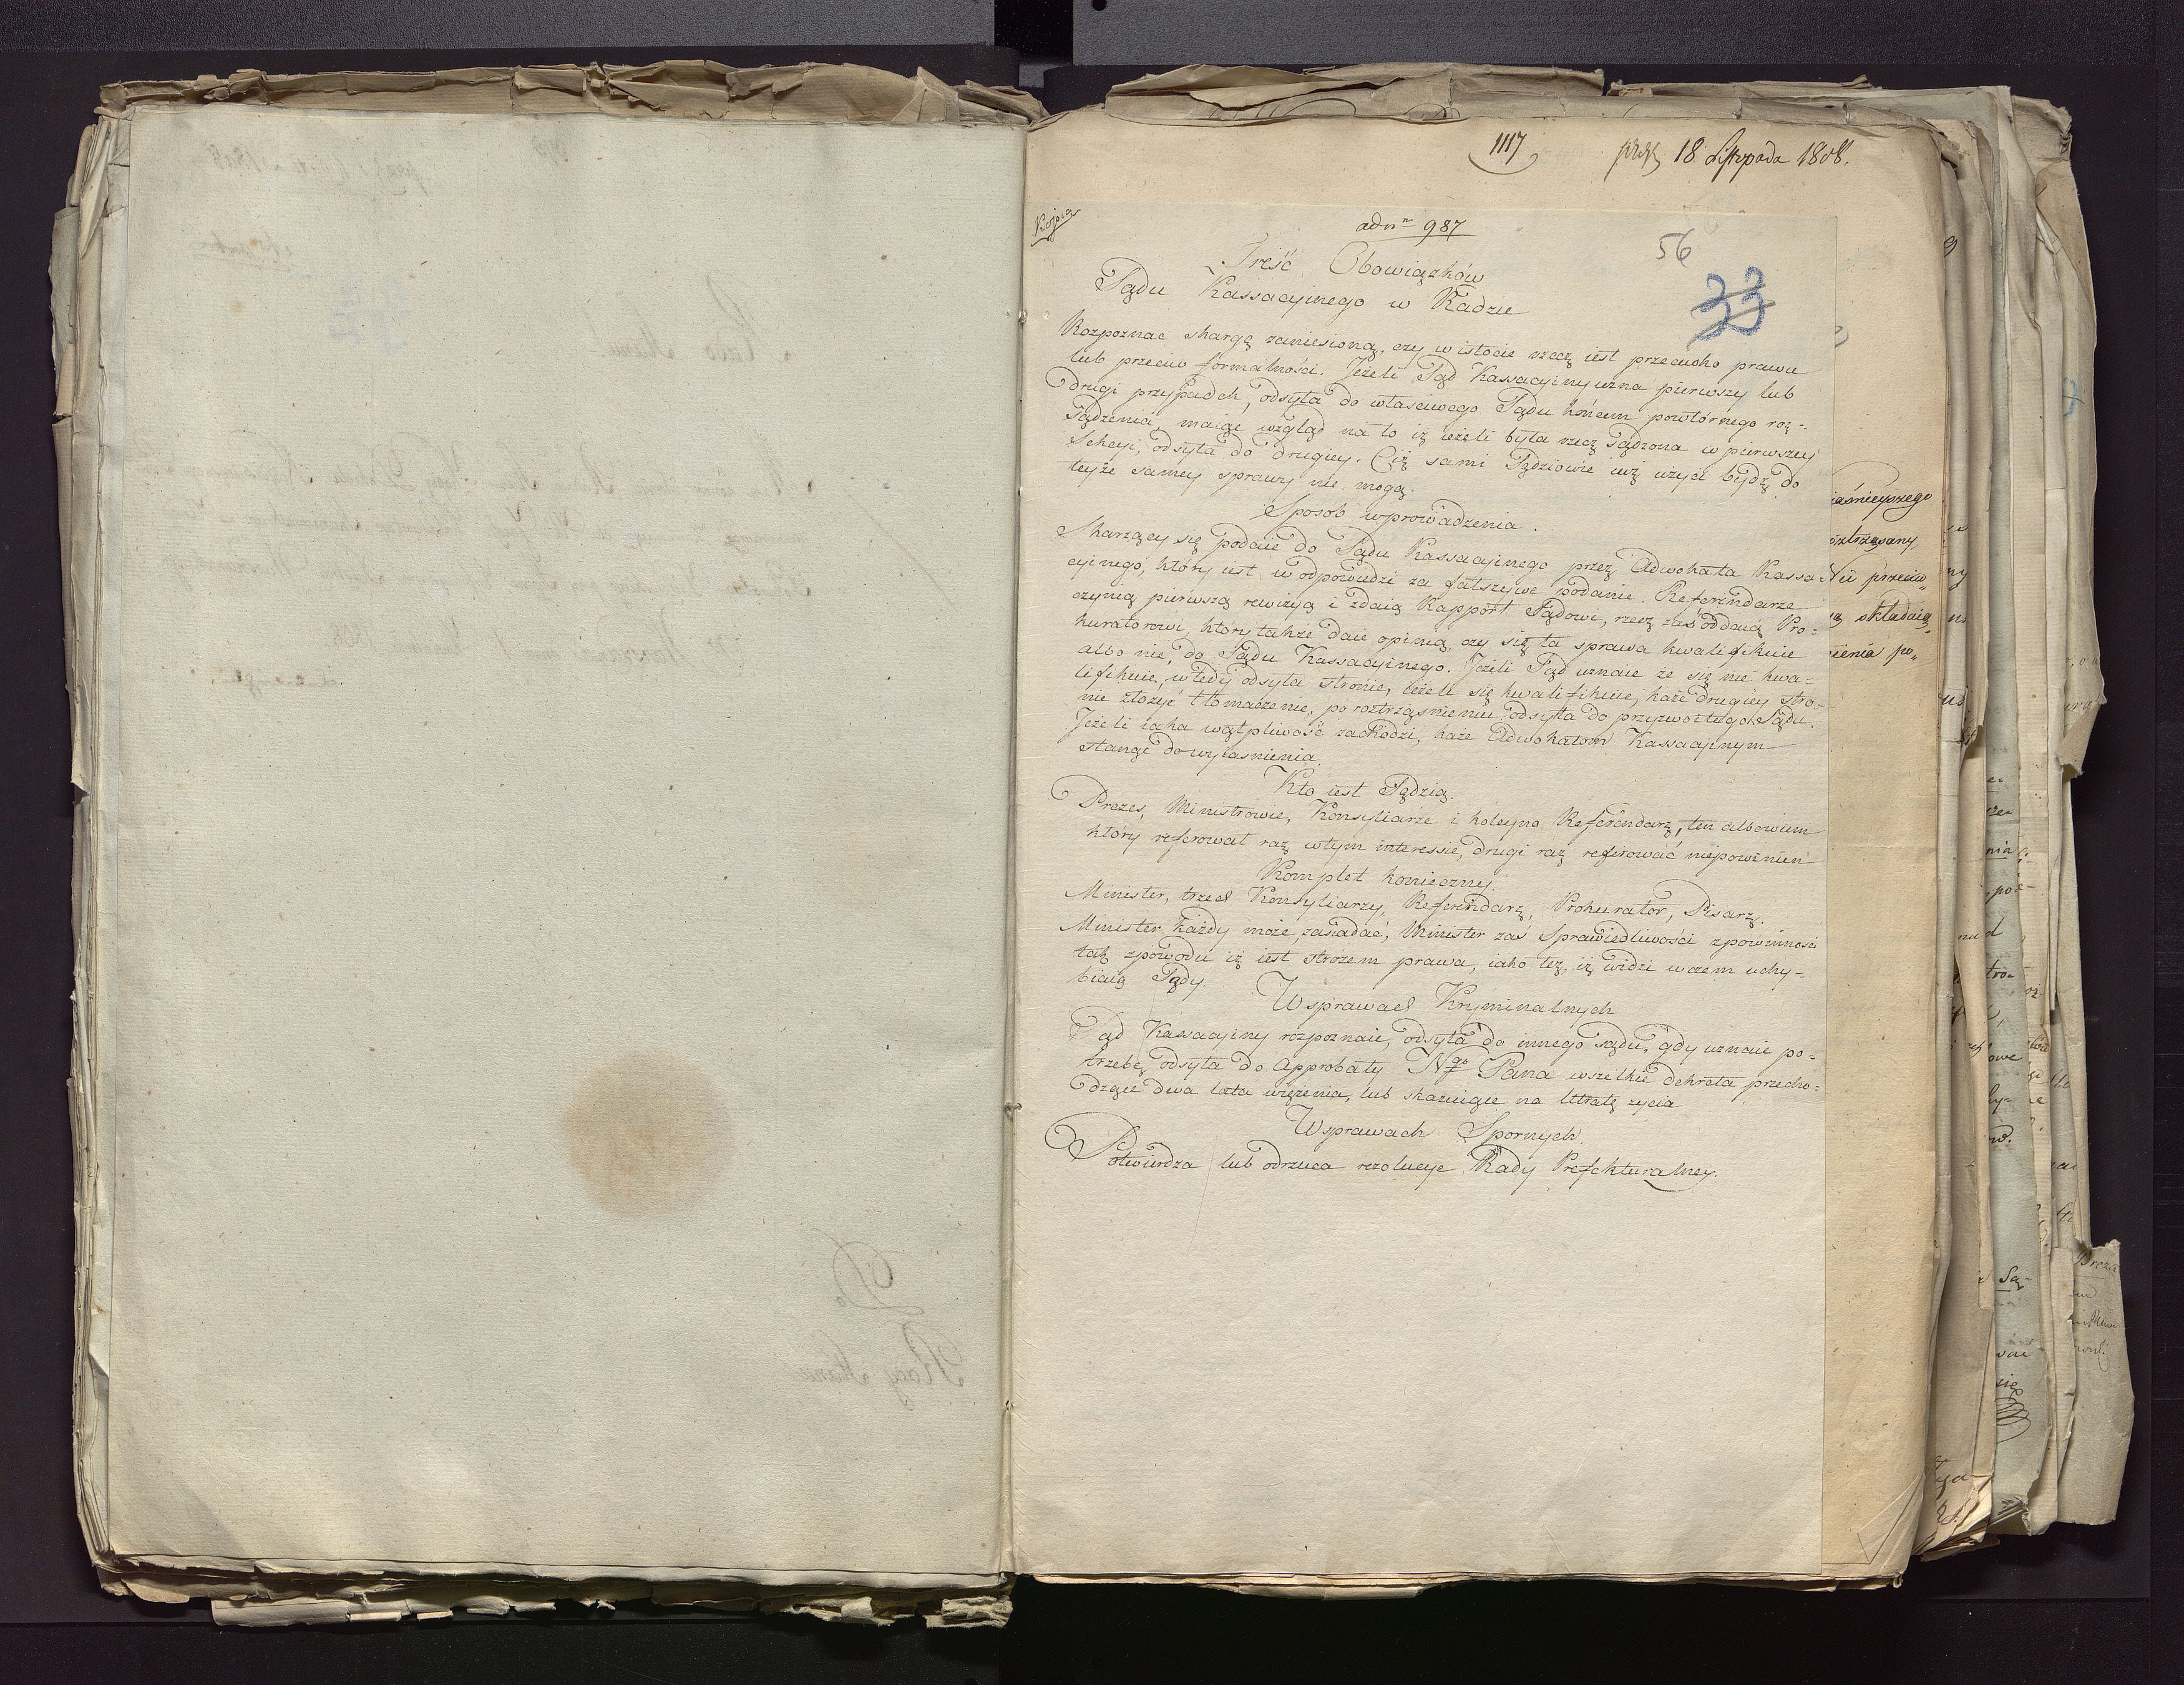 1117
prez 18 Listopada 1808.
Kopia
ad n 987
56
33
Treść Obowiązków
Sądu Kassacyinego w Radzie
Rozpoznac skargę zaniesioną, czy w istocie rzecz iest przeciwko prawu
lub przeciw formalności. Jeżeli Sąd Kassacyiny uzna pierwszy lub
drugi przypadek, odsyła do właściwego Sądu końcem powtórnego roz-
sądzenia, maiąc wzgląd na to iż ieżeli była rzecz sądzona w pierwszey
Sekcyi, odsyła do drugiey. Ciż sami Sędziowie iuż użyci bydź do
teyże samey sprawy nie mogą.
Sposób wprowadzenia.
Skarżący się podaie do Sądu Kassacyinego przez Adwokata Kassa-
cyinego, który iest w odpowiedzi za fałszywe podanie. Referendarze
czynią pierwszą rewizyą i zdaią Rapport Sądowi, rzecz zaś oddaią Pro-
kuratorowi, który także daie opinią, czy się ta sprawa kwalifikuie
albo nie, do Sądu Kassacyinego. Jeżeli Sąd uznaie że się nie kwa-
lifikuie, wtedy odsyła stronie, ieżeli się kwalifikuie, każe drugiey stro-
nie złożyć tłomaczenie, po roztrząśnieniu odsyła do przyzwoitego Sądu.
Jeżeli iaka wątpliwość zachodzi, każe Adwokatom Kassacyinym
stanąć do wyiaśnienia.
Kto iest Sędzią.
Prezes, Ministrowie, Konsyliarze i koleyno Referendarz, ten albowiem
który referował raz w tym interessie, drugi raz referować niepowinien
Komplet konieczny.
Minister, trzech Konsyliarzy, Referendarz, Prokurator, Pisarz.
Minister każdy może zasiadać, Minister zaś Sprawiedliwości z powinności
tak z powodu iż iest stróżem prawa, iako też, iż widzi w czem uchy-
biaią Sądy.
W sprawach Kryminalnych
Sąd Kassacyiny rozpoznaie, odsyła do innego sądu, gdy uznaie po-
trzebę, odsyła do Approbaty Ngo Pana wszelkie dekreta przecho-
dzące dwa lata więzienia, lub skazuiące na utratę życia
W sprawach Spornych.
Potwierdza lub odrzuca rezolucye Rady Prefekturalney.
iaśnieyszego
oztrząsany
przeciw„
składaią„
ienia po„